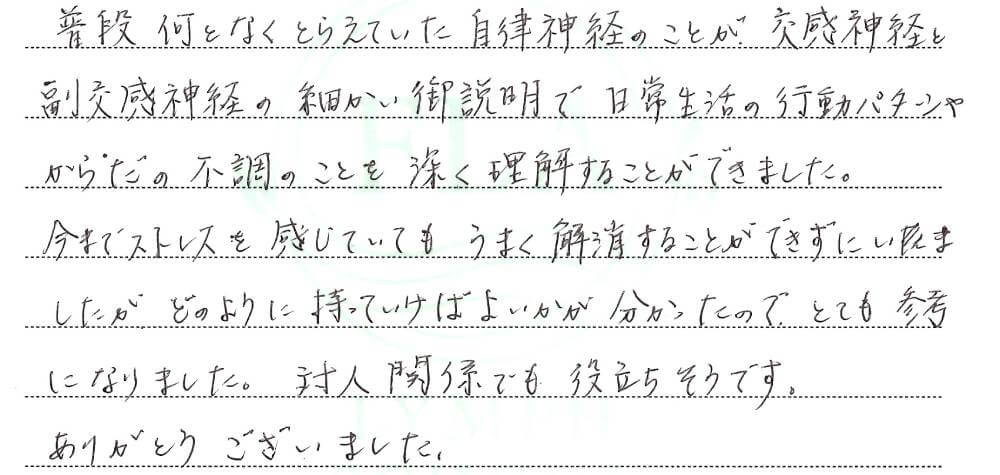 普段 何となくとらえていた 自律神経のことが 交感神経と
副交感神経の 細かい御説明で 日常生活の行動パターンや
からだの 不調のことを 深く理解することができました。
今までストレスを 感じていても うまく解消することができずにいま
したが どのように 持っていけばよいかが 分かったので とても 参考
になりました。 対人関係でも 役立ちそうです。
ありがとう ございました。